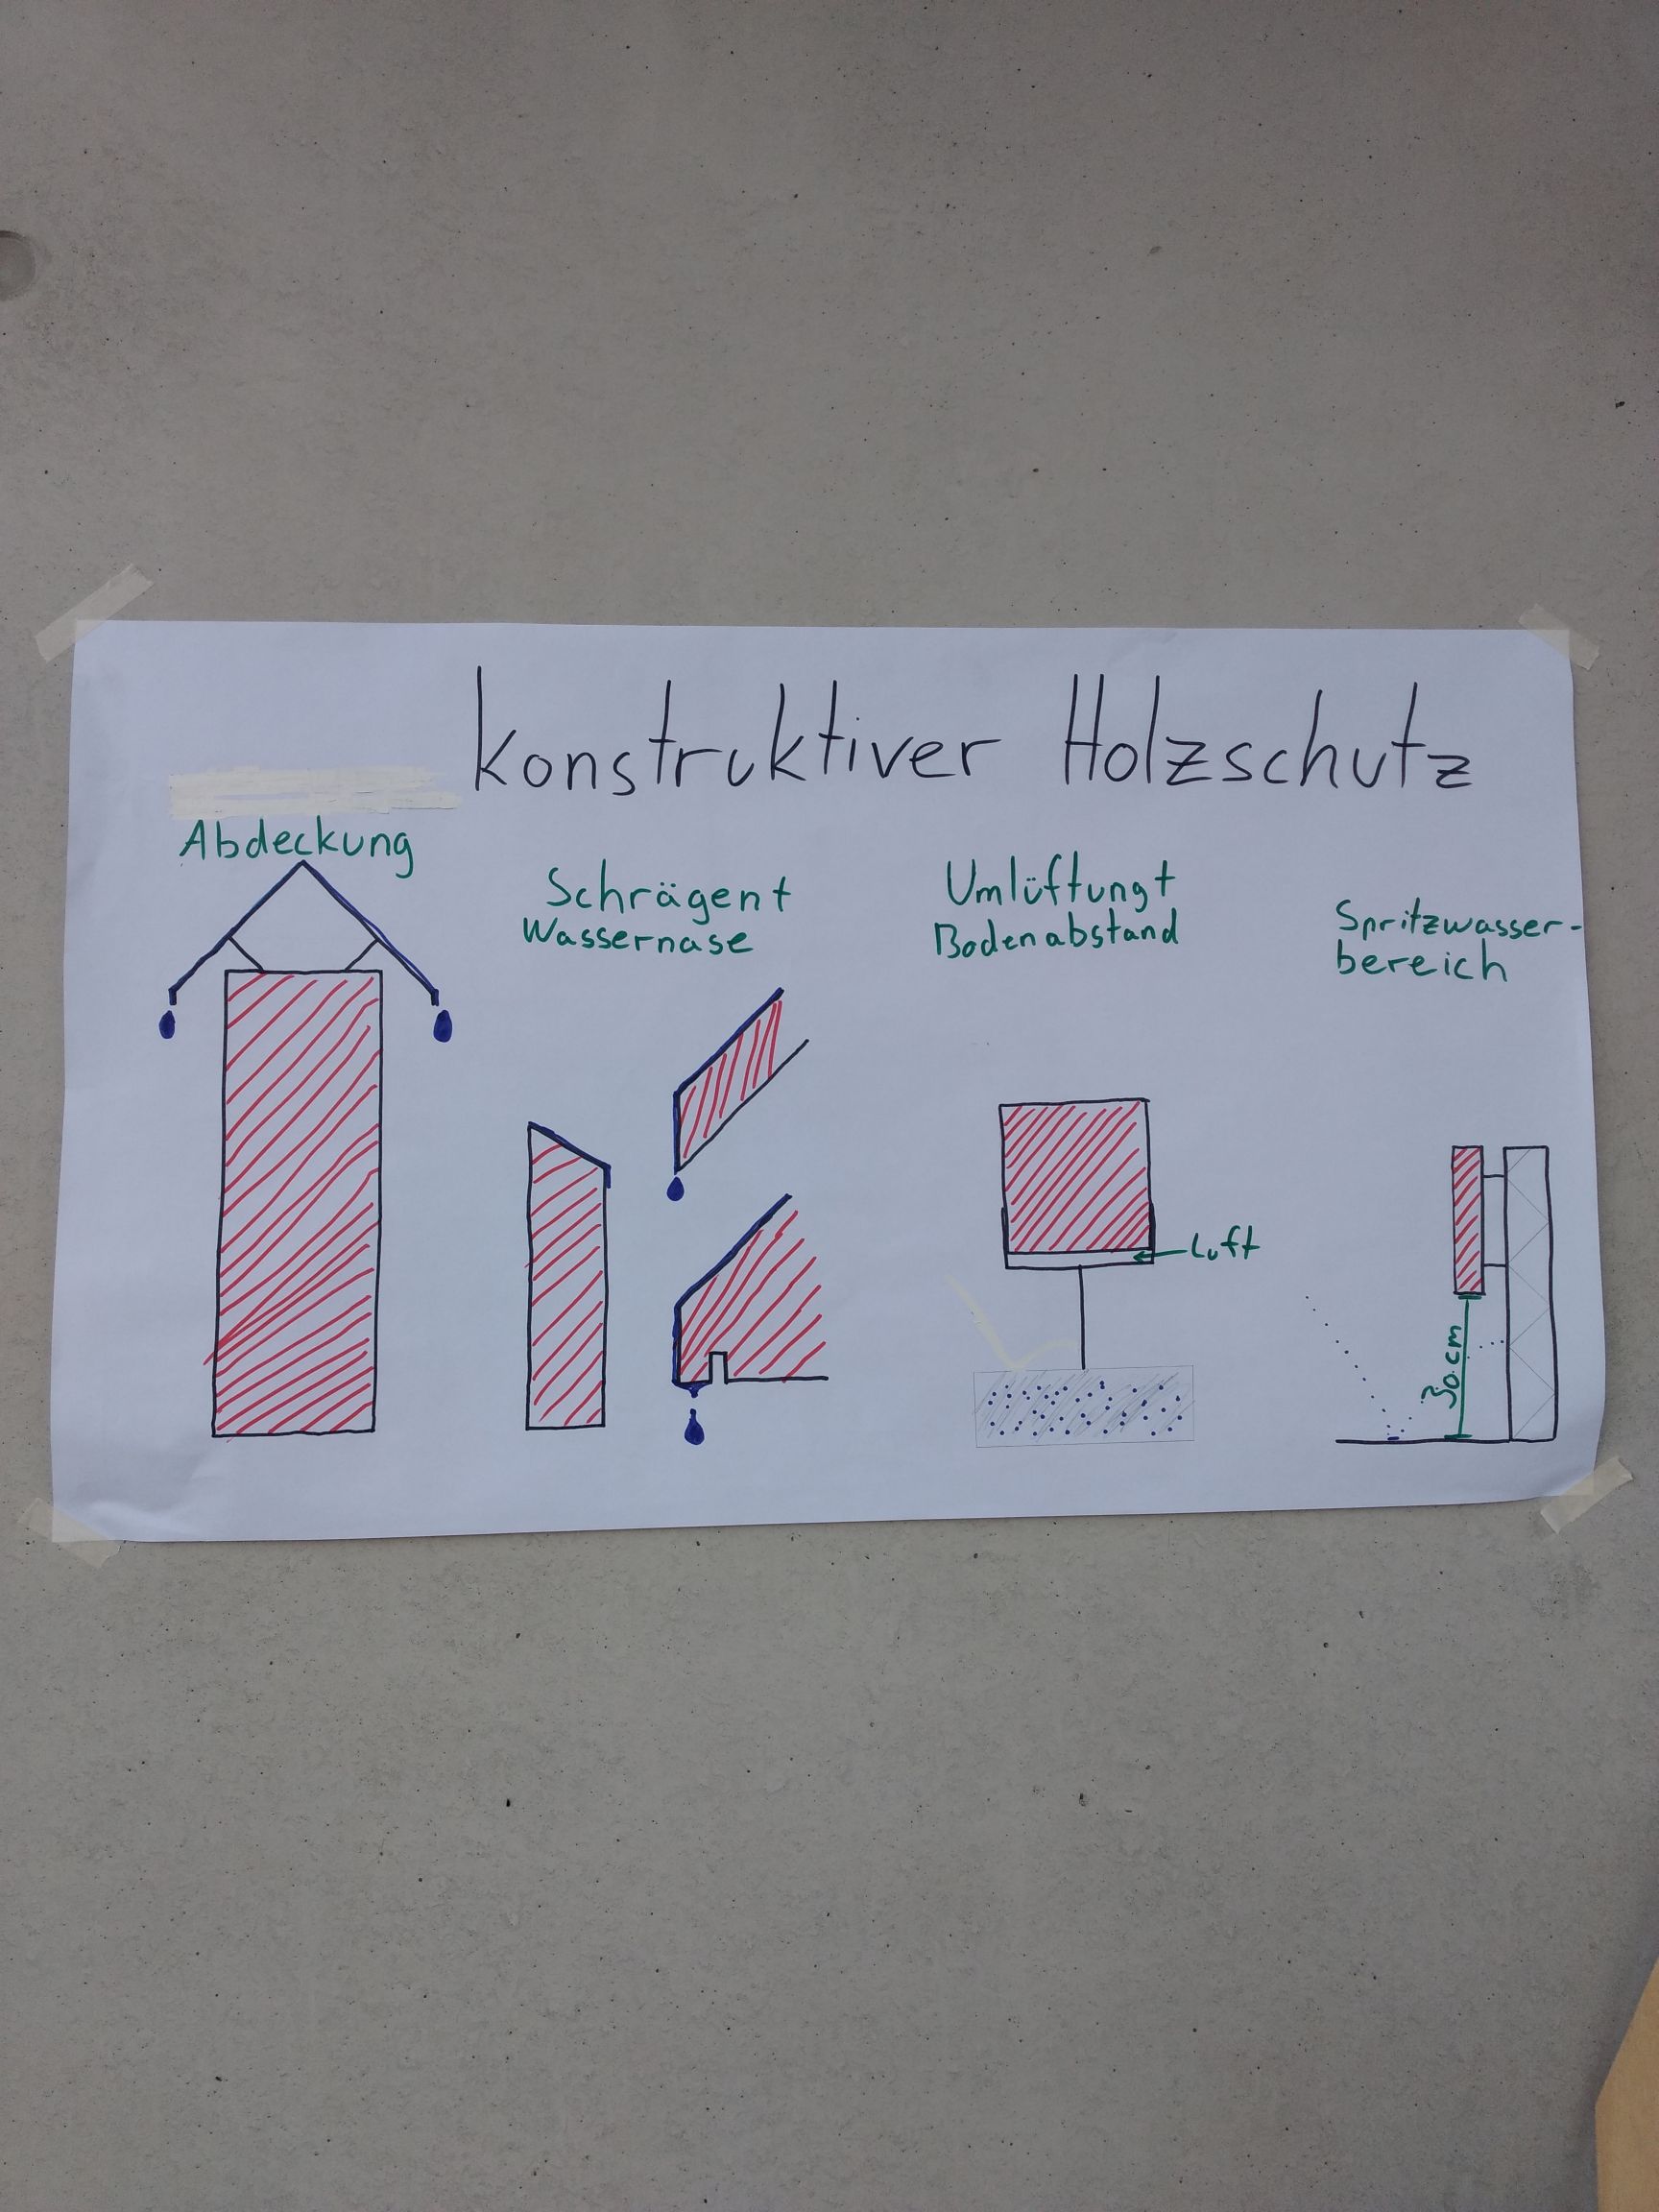 Konstruktiver Holzschutz
Abdeckung
Schrägen +
Wassernase
Umlüftung +
Bodenabstand
Luft
Spritzwasser-
bereich
30 cm